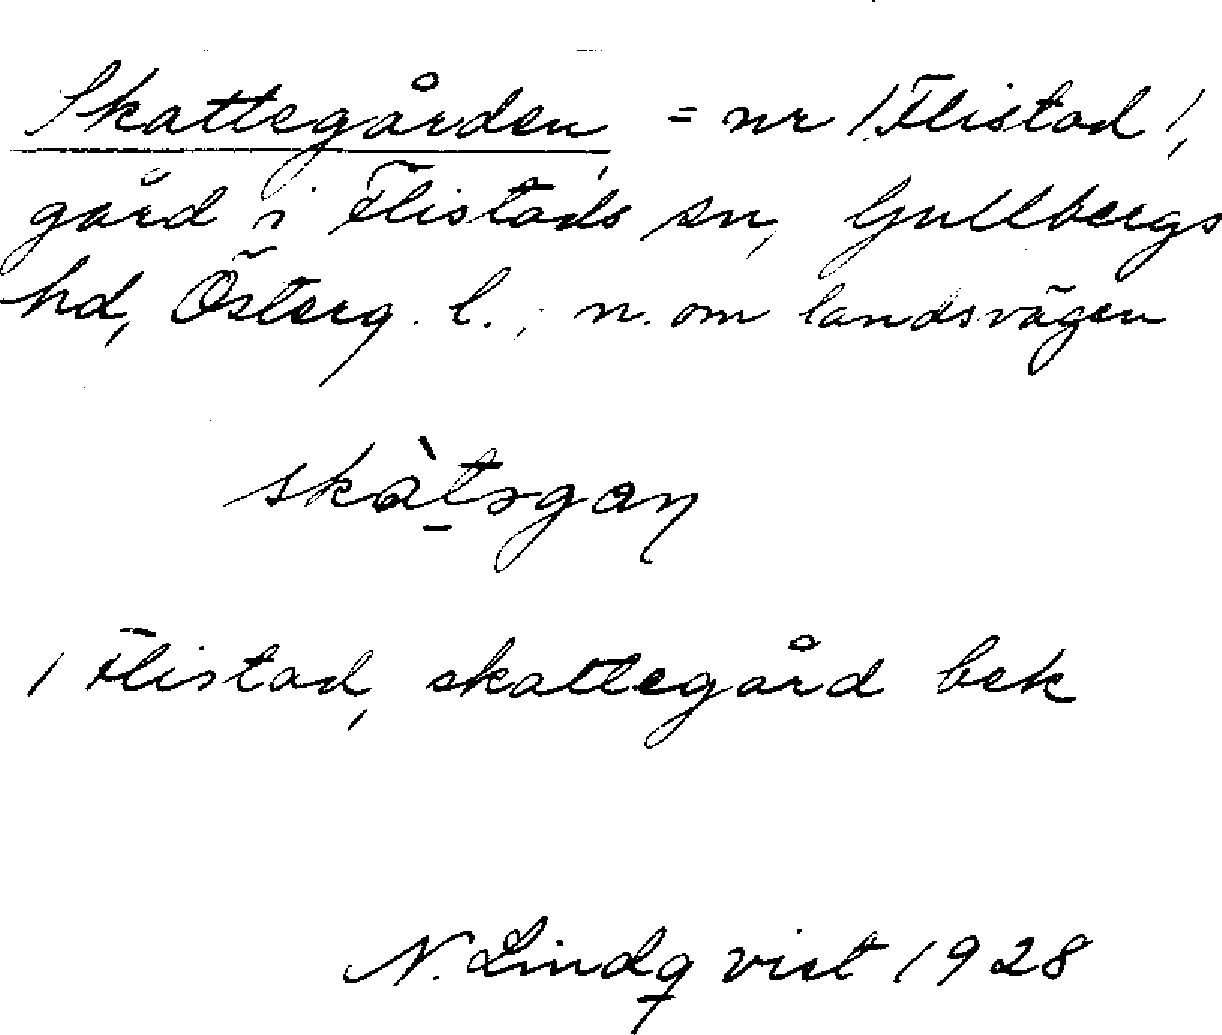 Skattegården, = nr 1 Flistad 1,
gård i Flistads sn, Gullbergs
hd, Österg. l.; n. om landsvägen
1 Flistad, skattegård bek
N. Lindqvist 1928